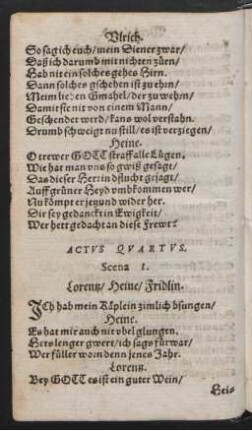 Vlrich.
So sag ich euch/ mein Diener zwar/
Daß ich darumb mit nichten zürn/
Hab nit ein solches gehes Hirn.
Dann solches gschehen ist zu ehrn/
Meim lieben Gmahel/ der zu wehrn/
Damit sie nit von einem Mann/
Geschendet werd/ kans wol verstahn.
Drumb schweig nu still/ es ist verziegen/
Heine.
O trewer GOTT straff alle Lügen.
Wie hat man vns so gwiß gesagt/
Das dieser Herr in d flucht gejagt/
Auff grüner Heyd vmbkommen wer/
Nu kömpt er jetzund wider her.
Die sey gedanckt in Ewigkeit/
Wer hett gedacht an diese Frewt?
ACTVS QVARTVS.
Scena 1.
Lorentz/ Heine/ Fridlin.
ICh hab mein Räplein zimlich bsungen/
Heine.
Es hat mir auch nit vbel glungen.
Hets lenger gwert/ ich sags fürwar/
Wer füller worn denn jenes Jahr.
Lorentz.
Bey GOTT es ist ein guter Wein/
Heis